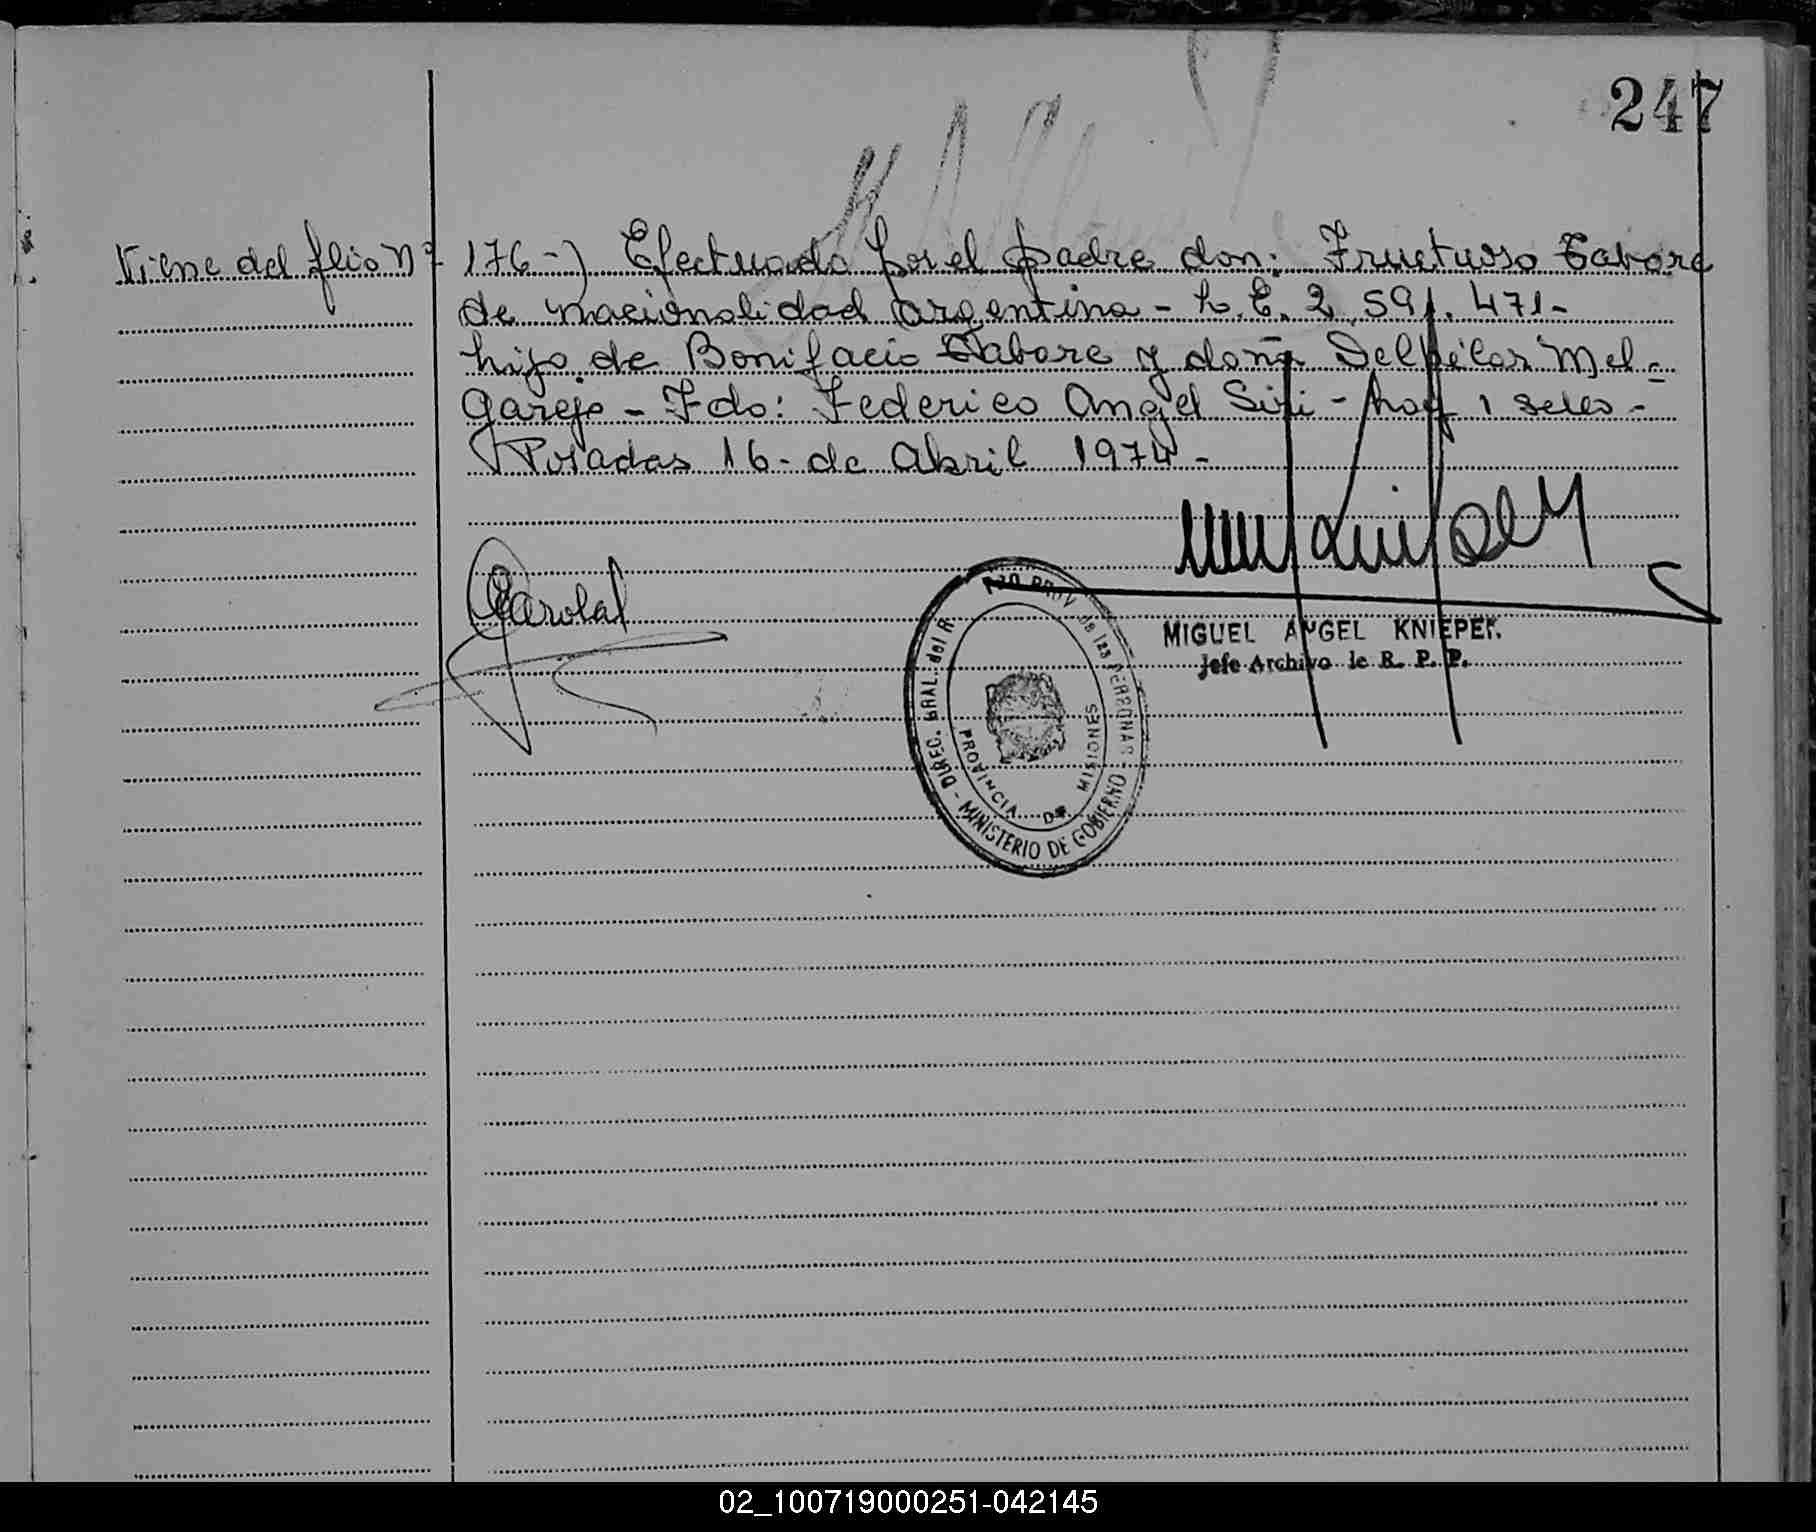 247
Viene del flio Nº 176-) Efectuado por el padre don: Fructuoso Tabore
de nacionalidad argentina - L.E. 2.591.471-
hijo de Bonifacio Tabore y doña Delpilar Mel-
garejo - Fdo: Federico Angel Siri - hay 1 sello -
Posadas 16- de Abril 1974 -
MIGUEL ANGEL KNIEPER.
Jefe Archivo de R. P. P.
DIREC. GRAL. del R. PROV de las PERSONAS
- MINISTERIO DE GOBIERNO -
PROVINCIA DE MISIONES
02_100719000251-042145